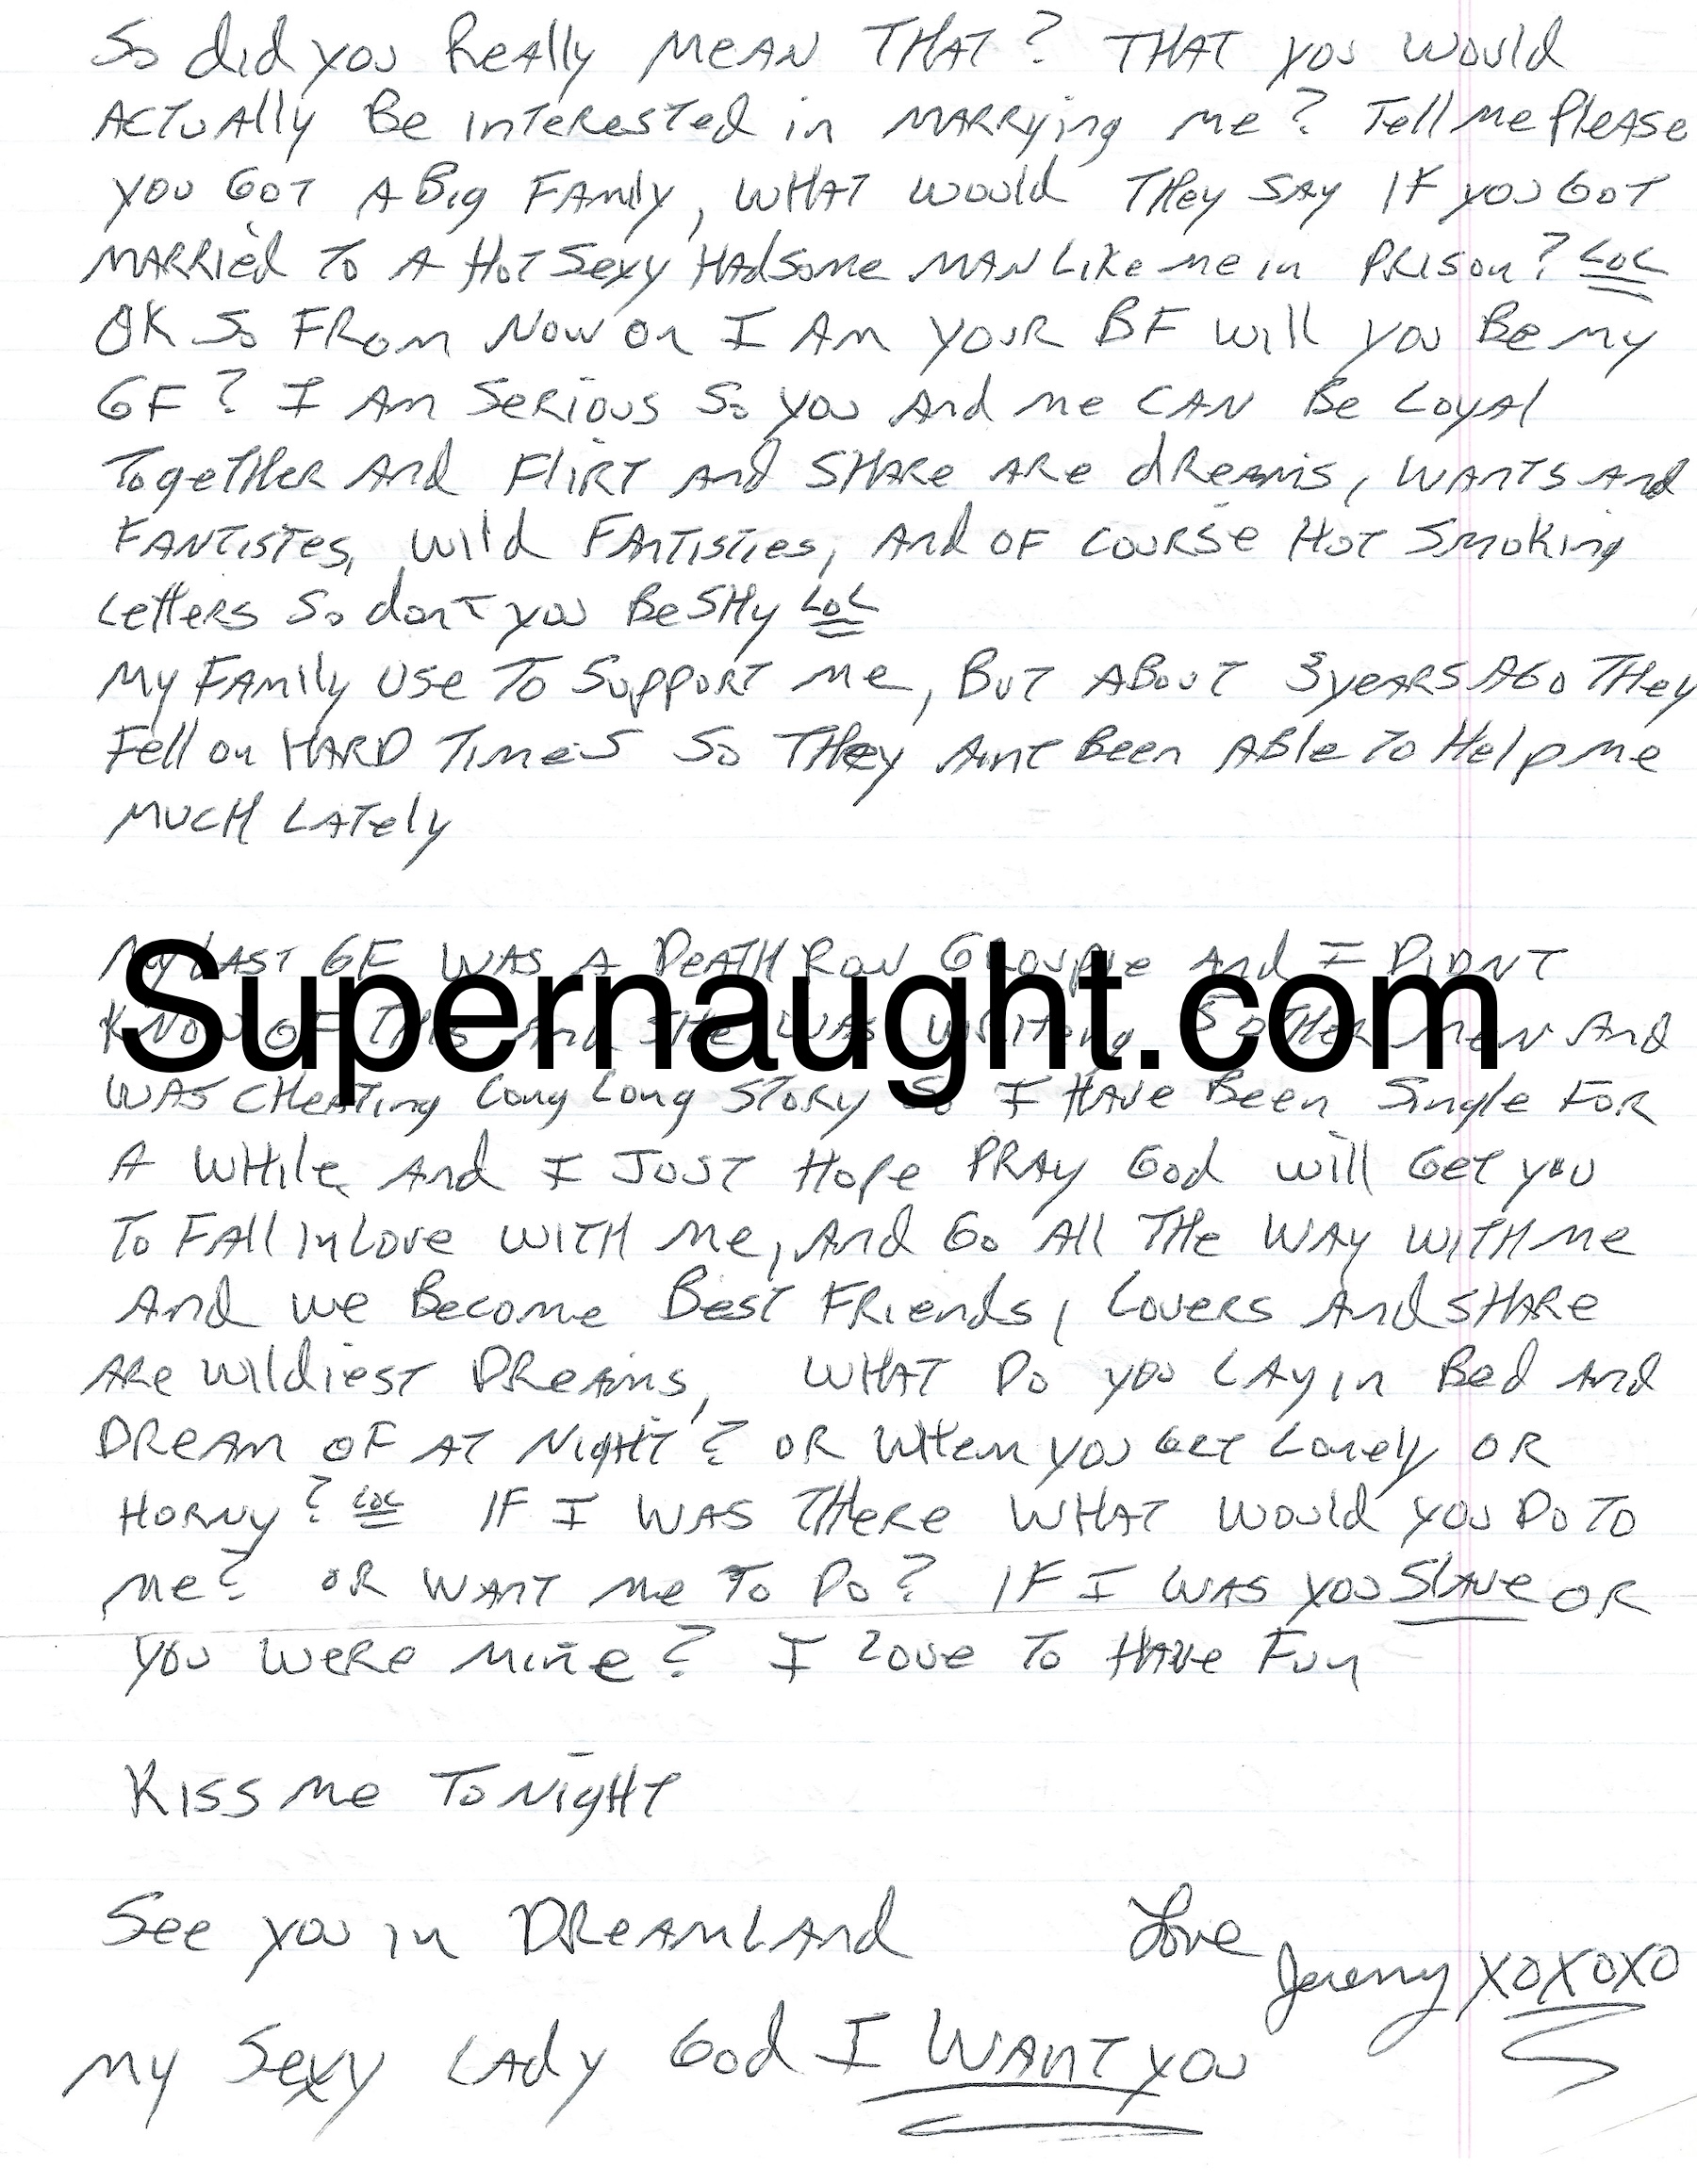 So did you Really MEAN THAT? THAT you would
ACTUAlly Be inTeResTed in MARRying me? Tell me PleAse
you GoT A Big FAmily, WHAT would THey SAy IF you GoT
MARRied To A HoT Sexy HAdSome MAN Like me in PRISon? LOL
OK So FRom Now on I Am youR BF will you Be my
GF? I Am SeRious So you And me CAN Be LoyAl
TogeTHeR And FliRT And SHARe ARe dReAms, WAnTS And
FANTISTES, wild FAnTISTies, And OF COURSe HoT Smoking
LetteRs So don'T you Be SHy LOL
My FAmily Use To SuppoRT me, BuT ABouT 3 yeARS AGo THey
Fell on HARD Times So THey AinT Been ABle To Help me
MUCH LATely
My LAST GF WAS A DeATH Row GRoupie And I DiDNT
Know OF THis And SHe WAS WRiTing 5 oTHeR men And
WAS CHeATing Long Long SToRy So I HAve Been Single FoR
A WHile And I JUST Hope PRAy God will GeT you
To FAll In Love WITH me, And Go All THe WAy WITH me
And we Become BesT FRiends, LoveRs And SHARe
ARe WildiesT DReAms, WHAT Do you LAy in Bed And
DReAm oF AT NigHT? OR WHen you GeT Lonely OR
HoRNy? LOL IF I WAS THeRe WHAT would you Do To
me? OR WAnT me To Do? IF I WAS you SlAve OR
you weRe mine? I love To HAve Fun
Kiss me ToNigHT
See you in DReAmLAnd Love
Jeremy XOXOXO
My Sexy LAdy God I WAnT you
Supernaught.com